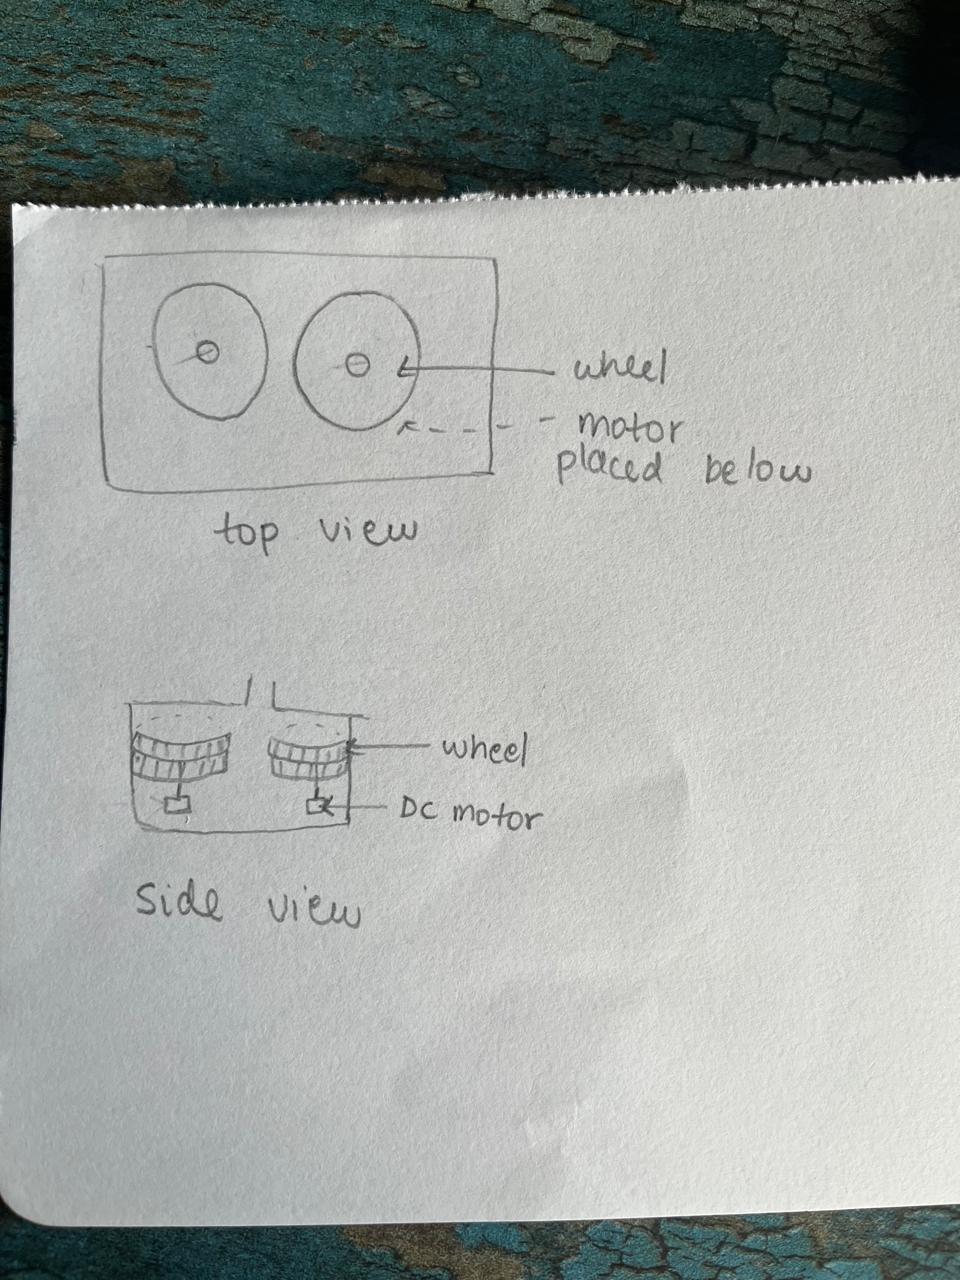 wheel
motor
placed below
top view
wheel
DC motor
side view